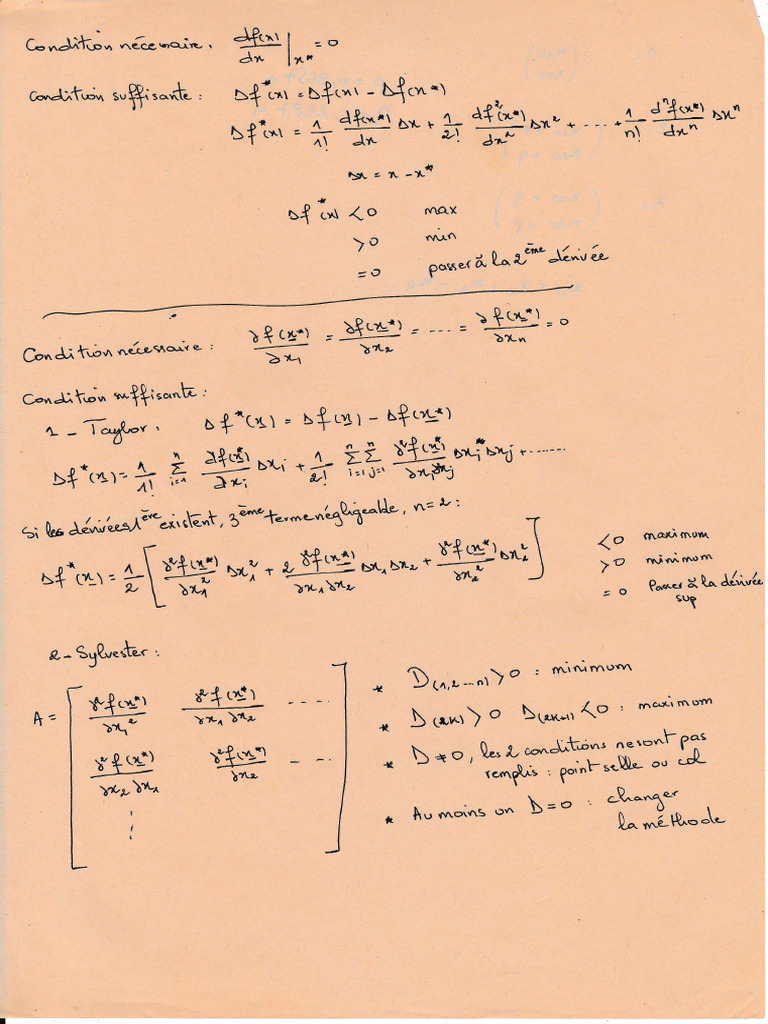 Condition nécessaire : df(x)/dx |x* = 0
Condition suffisante : Δf*(x) = Δf(x) - Δf(x*)
Δf*(x) = 1/1! df(x*)/dx Δx + 1/2! df²(x*)/dx² Δx² + ... + 1/n! dⁿf(x*)/dxⁿ Δxⁿ
Δx = x - x*
Δf*(x) < 0 max
> 0 min
= 0 passer à la 2ème dérivée
Condition nécessaire : ∂f(x*)/∂x₁ = ∂f(x*)/∂x₂ = ... = ∂f(x*)/∂xn = 0
Condition suffisante :
1 - Taylor. Δf*(x) = Δf(x) - Δf(x*)
Δf*(x) = 1/1! Σ i=1 n ∂f(x*)/∂xi Δxi + 1/2! Σ i=1 n Σ j=1 n ∂²f(x*)/∂xi∂xj Δxi* Δxj + ......
Si les dérivées 1ère existent, 3ème terme négligeable, n=2 :
Δf*(x) = 1/2 [ ∂²f(x*)/∂x₁² Δx₁² + 2 ∂²f(x*)/∂x₁∂x₂ Δx₁Δx₂ + ∂²f(x*)/∂x₂² Δx₂² ]
< 0 maximum
> 0 minimum
= 0 Passer à la dérivée
sup
2 - Sylvester :
A = [ ∂²f(x*)/∂x₁² ∂²f(x*)/∂x₁∂x₂ ....
∂²f(x*)/∂x₂∂x₁ ∂²f(x*)/∂x₂ ...
⋮ ]
* D(1,2...n) > 0 : minimum
* D(2K) > 0 D(2K+1) < 0 : maximum
* D ≠ 0, les 2 conditions ne sont pas
remplis : point selle ou col
* Au moins un D = 0 : changer
la méthode